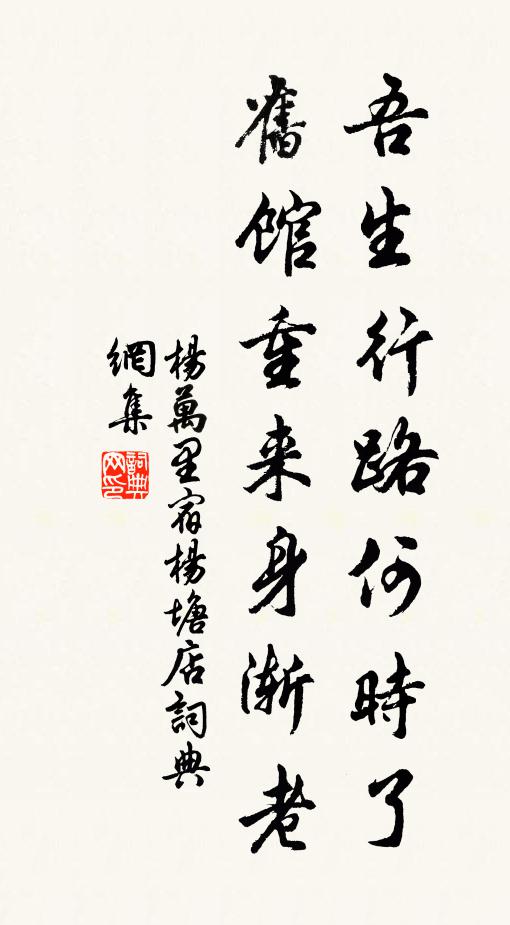 吾生行路何時了
舊館重来身漸老
楊萬里宿楊塘店詞典
網集
詞典网印